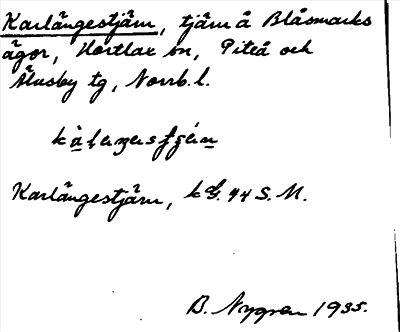 Karlångestjärn, tjärn å Blåsmarks
ägor, Hortlax sn, Piteå och
Älvsby tg, Norrb. l.
Karlångestjärn, kG. 44 S. M.
B. Nygren 1935.